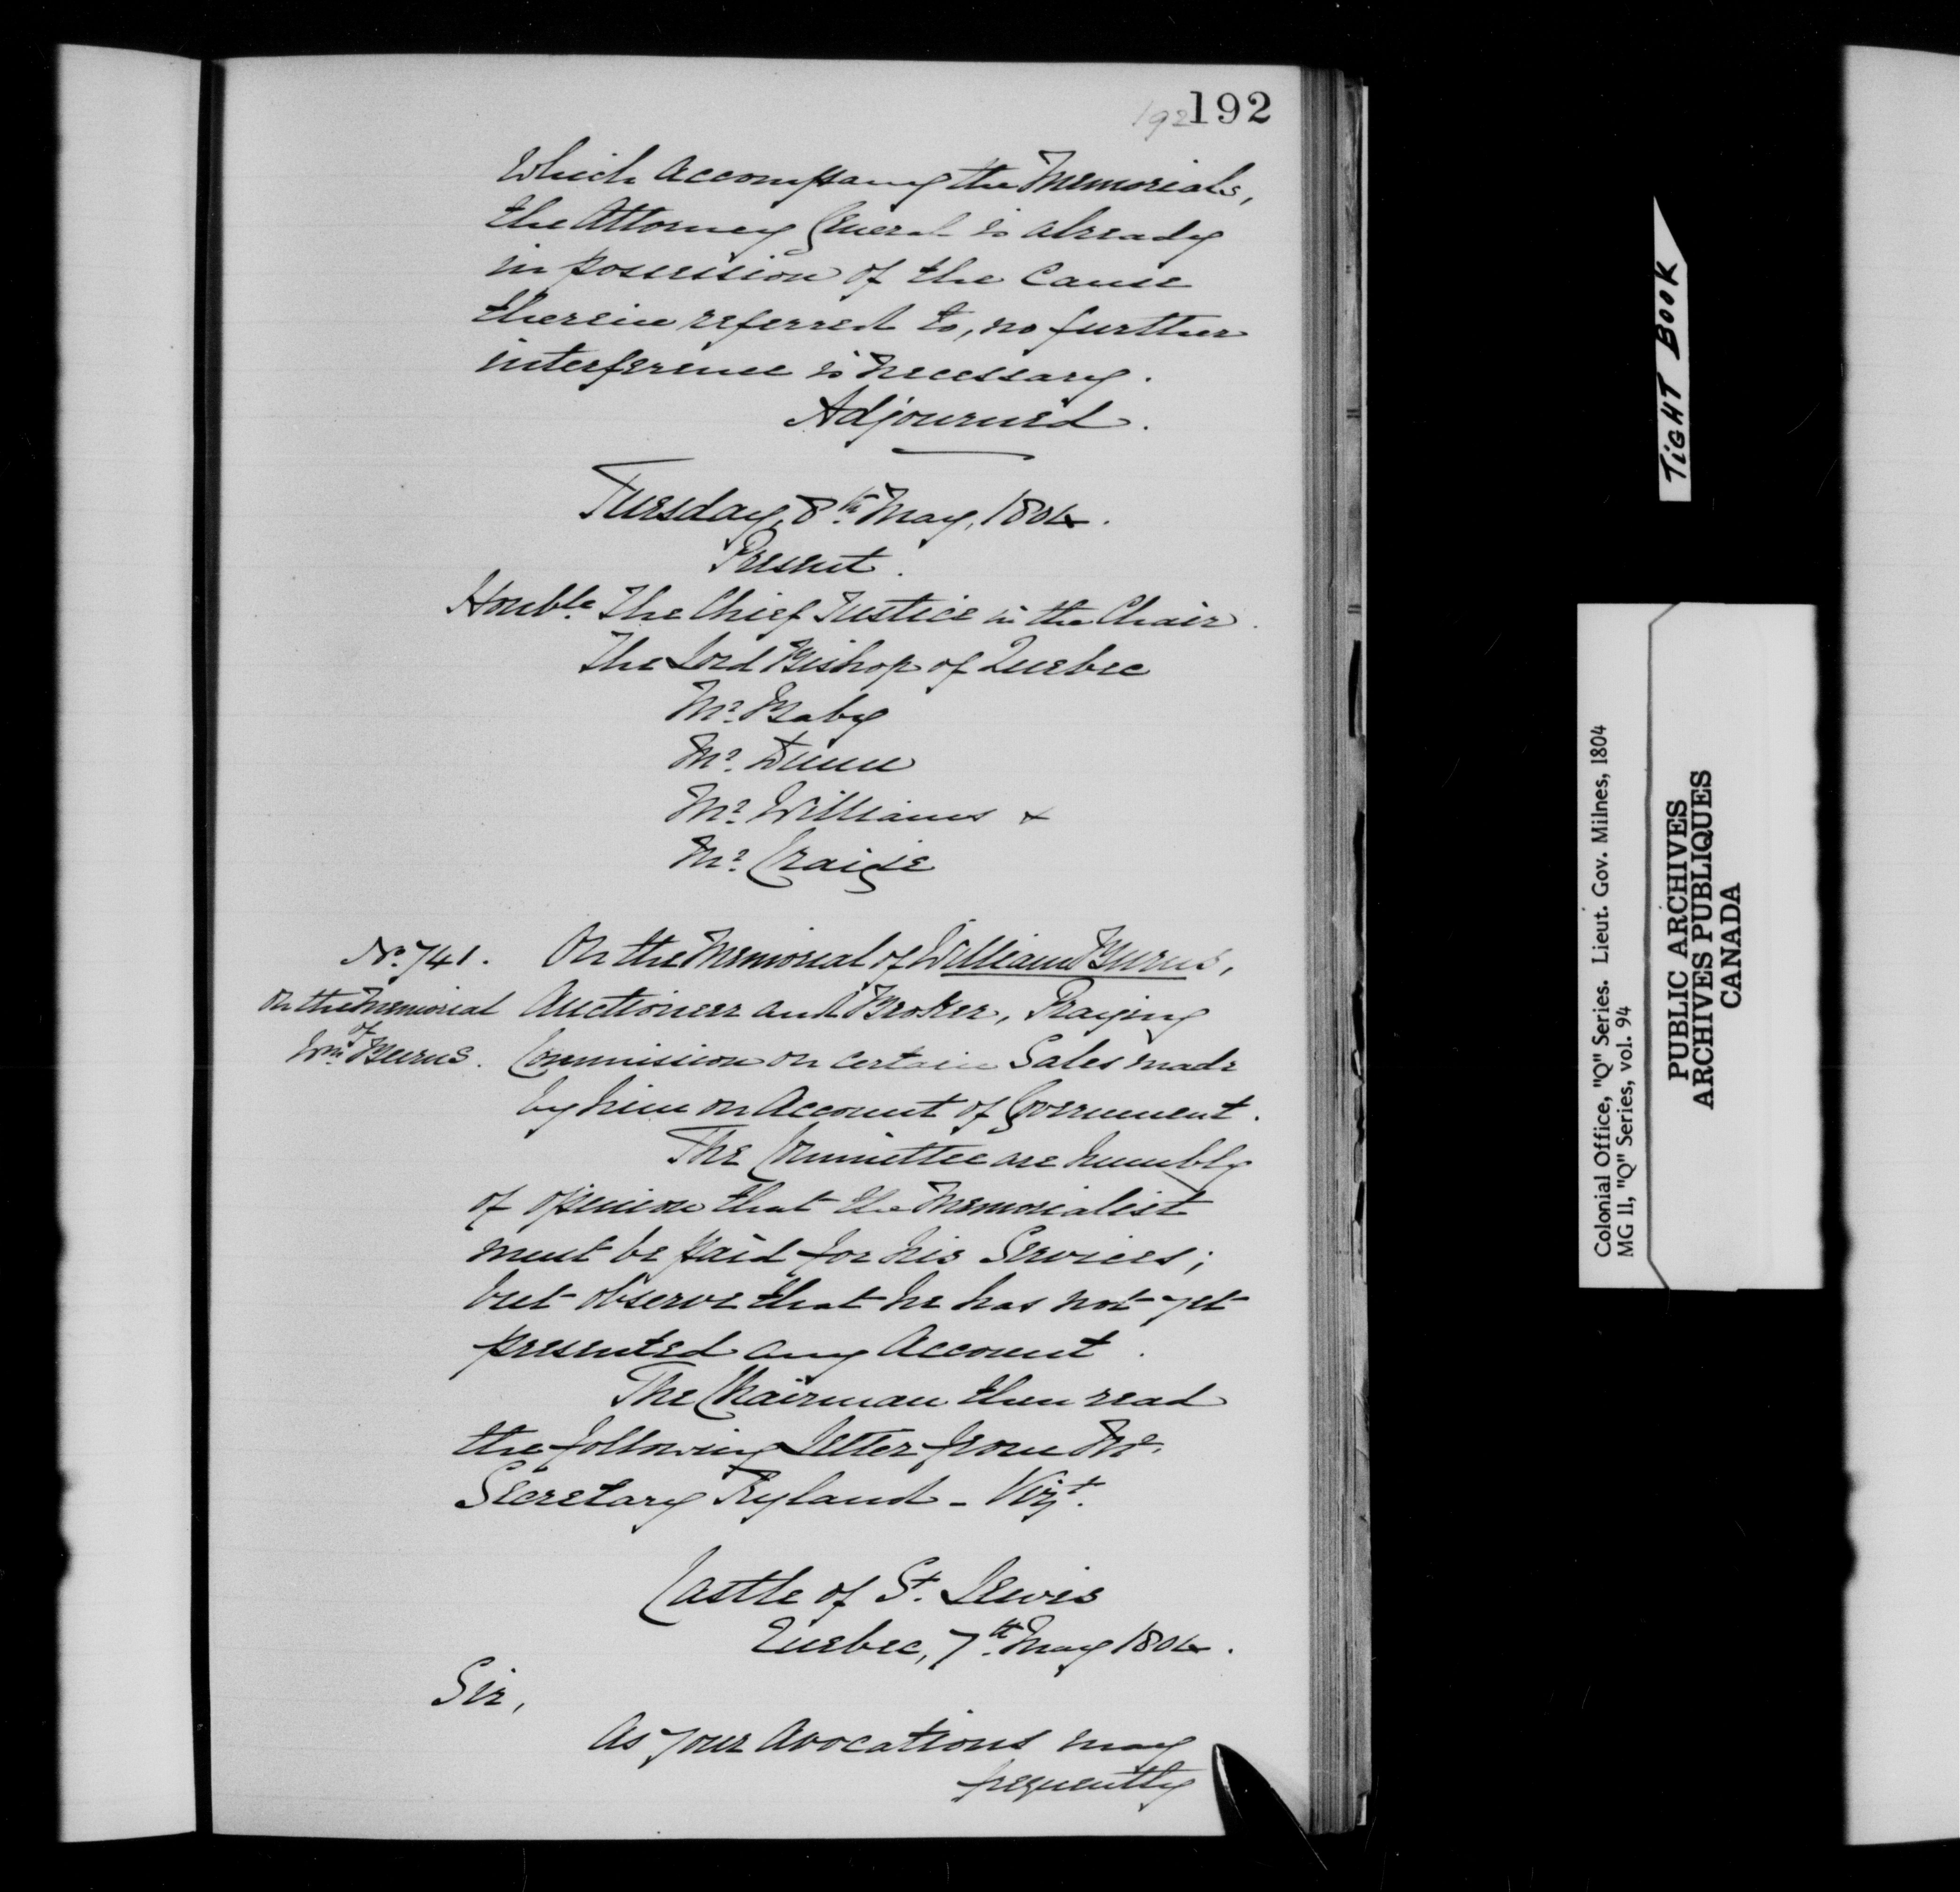 192
192
which accompany the Memorials,
the Attorney General is already
in possession of the Cause
therein referred to, no further
interference is necessary.
Adjourned.
Tuesday, 8th May, 1804.
Present.
Honble. The Chief Justice in the Chair.
The Lord Bishop of Quebec
Mr. Baby
Mr. Dunn
Mr. Williams &
Mr. Craigie
No. 741.
On the Memorial
of
Wm. Burns.
On the Memorial of William Burns,
Auctioneer and Broker, Praying
Commission on certain Sales made
by him on Account of Government.
The Committee are humbly
of opinion that the Memorialist
must be paid for his Services;
but observe that he has not yet
presented any Account.
The Chairman then read
the following Letter from Mr.
Secretary Ryland - Vizt.
Castle of St. Lewis
Quebec, 7th May 1804.
Sir,
As your avocations may
frequently
TIGHT BOOK
Colonial Office, "Q" Series. Lieut. Gov. Milnes, 1804
MG 11, "Q" Series, vol. 94
PUBLIC ARCHIVES
ARCHIVES PUBLIQUES
CANADA